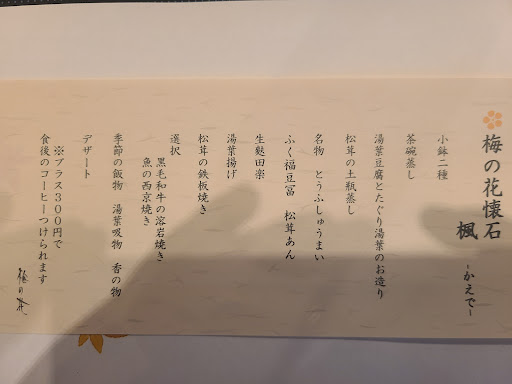 梅の花懐石
楓 -かえで-
小鉢二種
茶碗蒸し
湯葉豆腐とたぐり湯葉のお造り
松茸の土瓶蒸し
名物 とうふしゅうまい
ふく福豆冨 松茸あん
生麩田楽
湯葉揚げ
松茸の鉄板焼き
選択
黒毛和牛の溶岩焼き
魚の西京焼き
季節の飯物 湯葉吸物 香の物
デザート
※プラス300円で
食後のコーヒーつけられます
梅の花